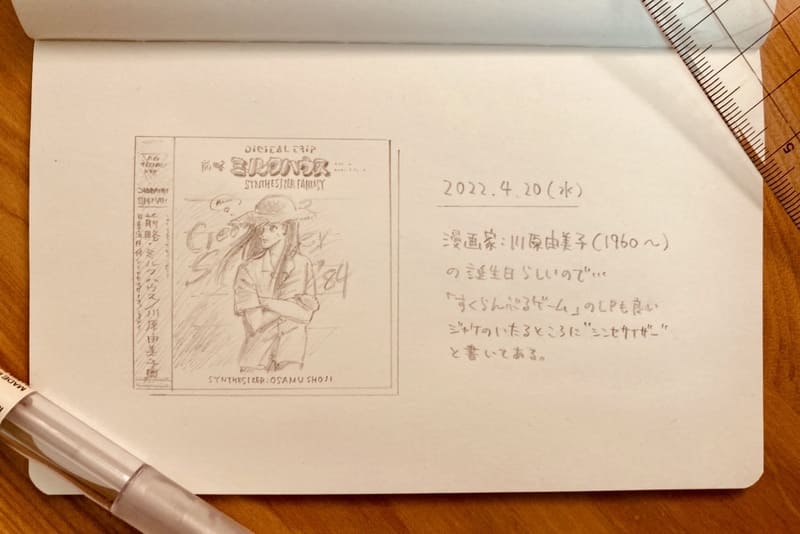 DIGITAL TRIP
前略 ミルクハウス
SYNTHESIZER FANTASY
'84
SYNTHESIZER: OSAMU SHOJI
前略・ミルクハウス/川原由美子
2022.4.20(水)
漫画家:川原由美子(1960〜)
の誕生日らしいので…
「すくらんぶるゲーム」のLPも良い
ジャケのいたるところに"シンセサイザー"
と書いてある。
5
MADE